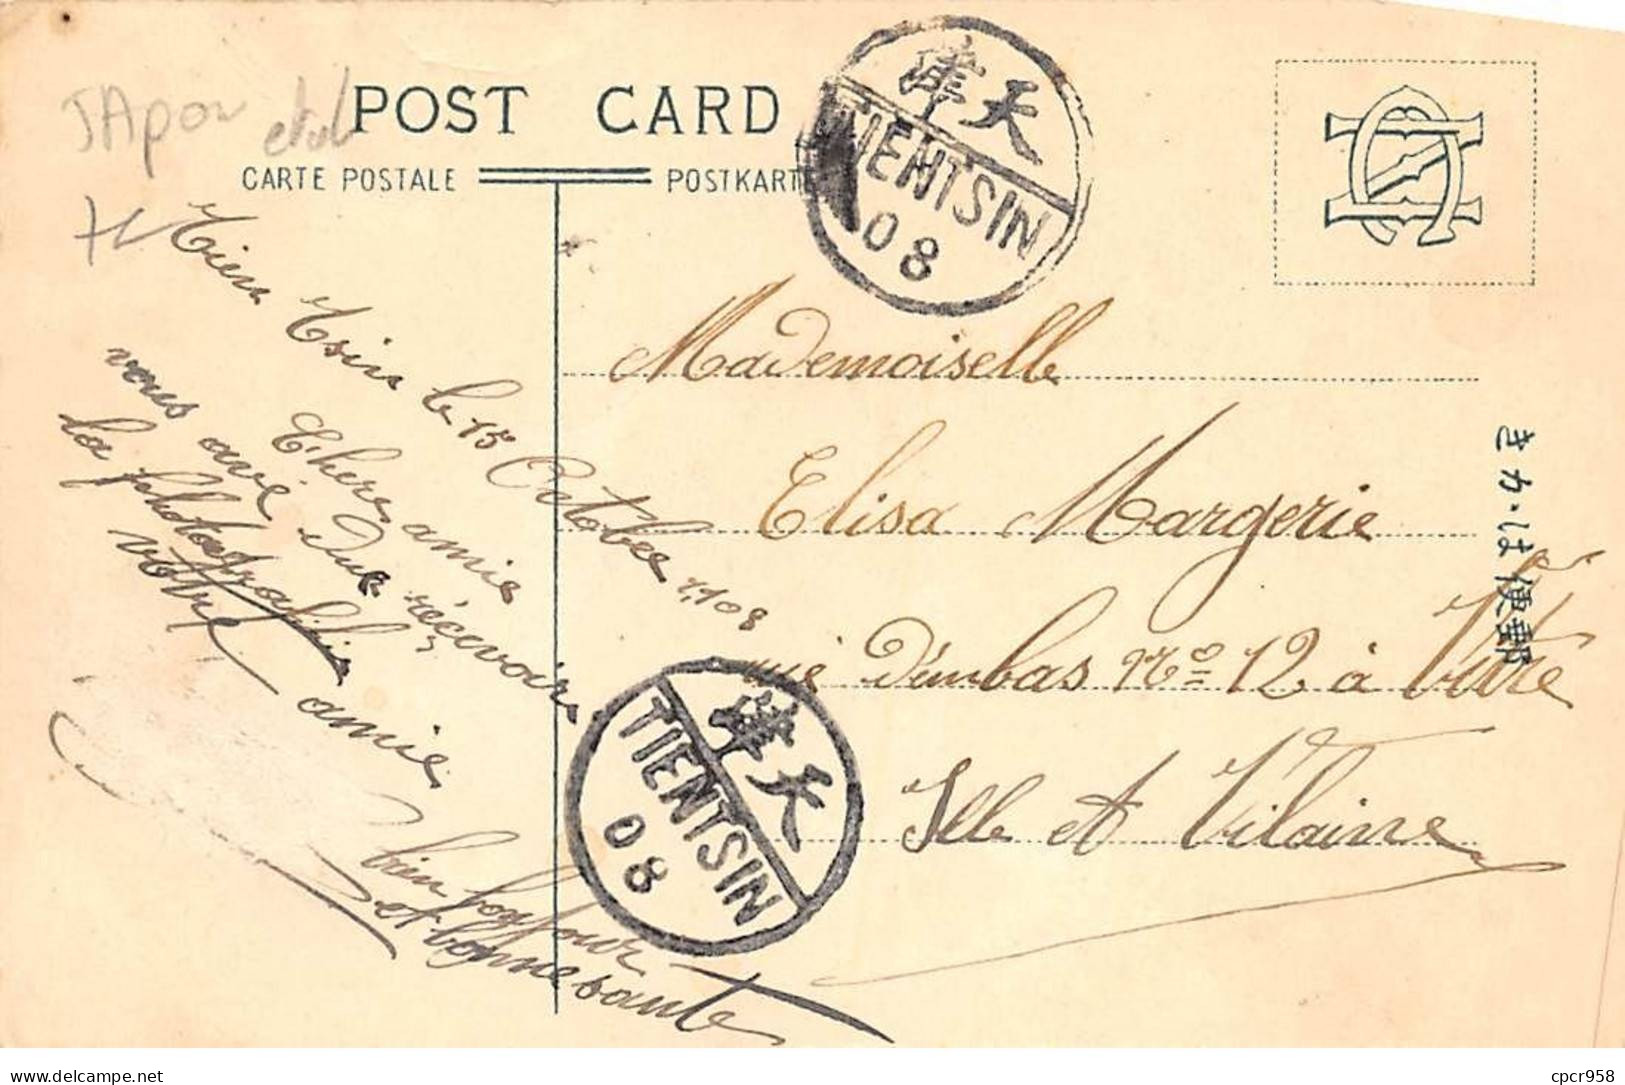 JApon
POST CARD
CARTE POSTALE
POSTKARTE
天津
TIENTSIN
08
Tien Tsin le 15 Octobre 1908
Chere amie
vous avé due récevoir
la fohotografhie
votre amie
bien bonjour
et bonne sante
Mademoiselle
Elisa Margerie
rue d'embas No 12 à Vitré
Ille et Vilaine
きかは便郵
天津
TIENTSIN
08
delcampe.net
cpcr958